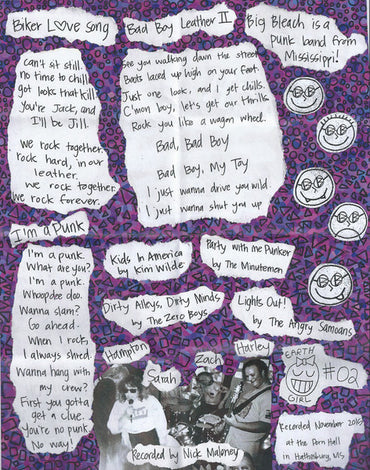 Biker Love Song
can't sit still.
no time to chill.
got looks that kill
you're Jack, and
I'll be Jill.
we rock together.
rock hard, in our
leather.
we rock together.
we rock forever.
I'm a Punk
I'm a punk.
What are you?
I'm a punk.
Whoopdee doo.
Wanna slam?
Go ahead.
When I rock,
I always shred.
Wanna hang with
my crew?
First you gotta
get a clue.
You're no punk.
No way!
Bad Boy Leather II
See you walking down the street
Boots laced up high on your feet.
Just one look, and I get chills.
C'mon boy, let's get our thrills.
Rock you like a wagon wheel.
Bad, Bad Boy
Bad Boy, My Toy
I just wanna drive you wild
I just wanna shut you up
Big Bleach is a
punk band from
Mississippi!
Kids In America
by Kim Wilde
Party with me Punker
by The Minutemen
Dirty Alleys, Dirty Minds
by The Zero Boys
Lights Out!
by The Angry Samoans
Hampton
Sarah
Zach
Harley
Recorded by Nick Maloney
EARTH
GIRL
#02
Recorded November 2016
at the Porn Hell
in Hattiesburg, MS